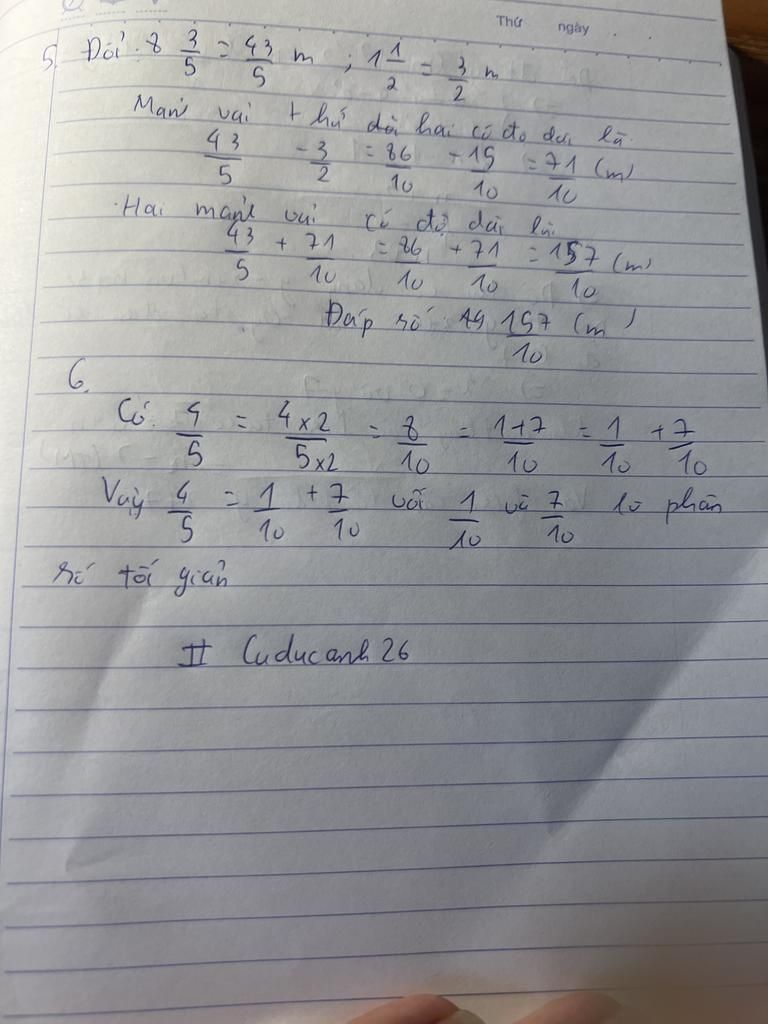 Thứ ngày
5. Đổi: 8 3/5 = 43/5 m ; 1 1/2 = 3/2 m
Mảnh vải thứ dài hai có độ dài là:
43/5 - 3/2 = 86/10 - 15/10 = 71/10 (m)
Hai mảnh vải có độ dài là:
43/5 + 71/10 = 86/10 + 71/10 = 157/10 (m)
Đáp số: 157/10 (m)
6.
Có: 4/5 = 4×2/5×2 = 8/10 = 1+7/10 = 1/10 + 7/10
Vậy 4/5 = 1/10 + 7/10 với 1/10 và 7/10 là phân
số tối giản
II Cuducanh 26